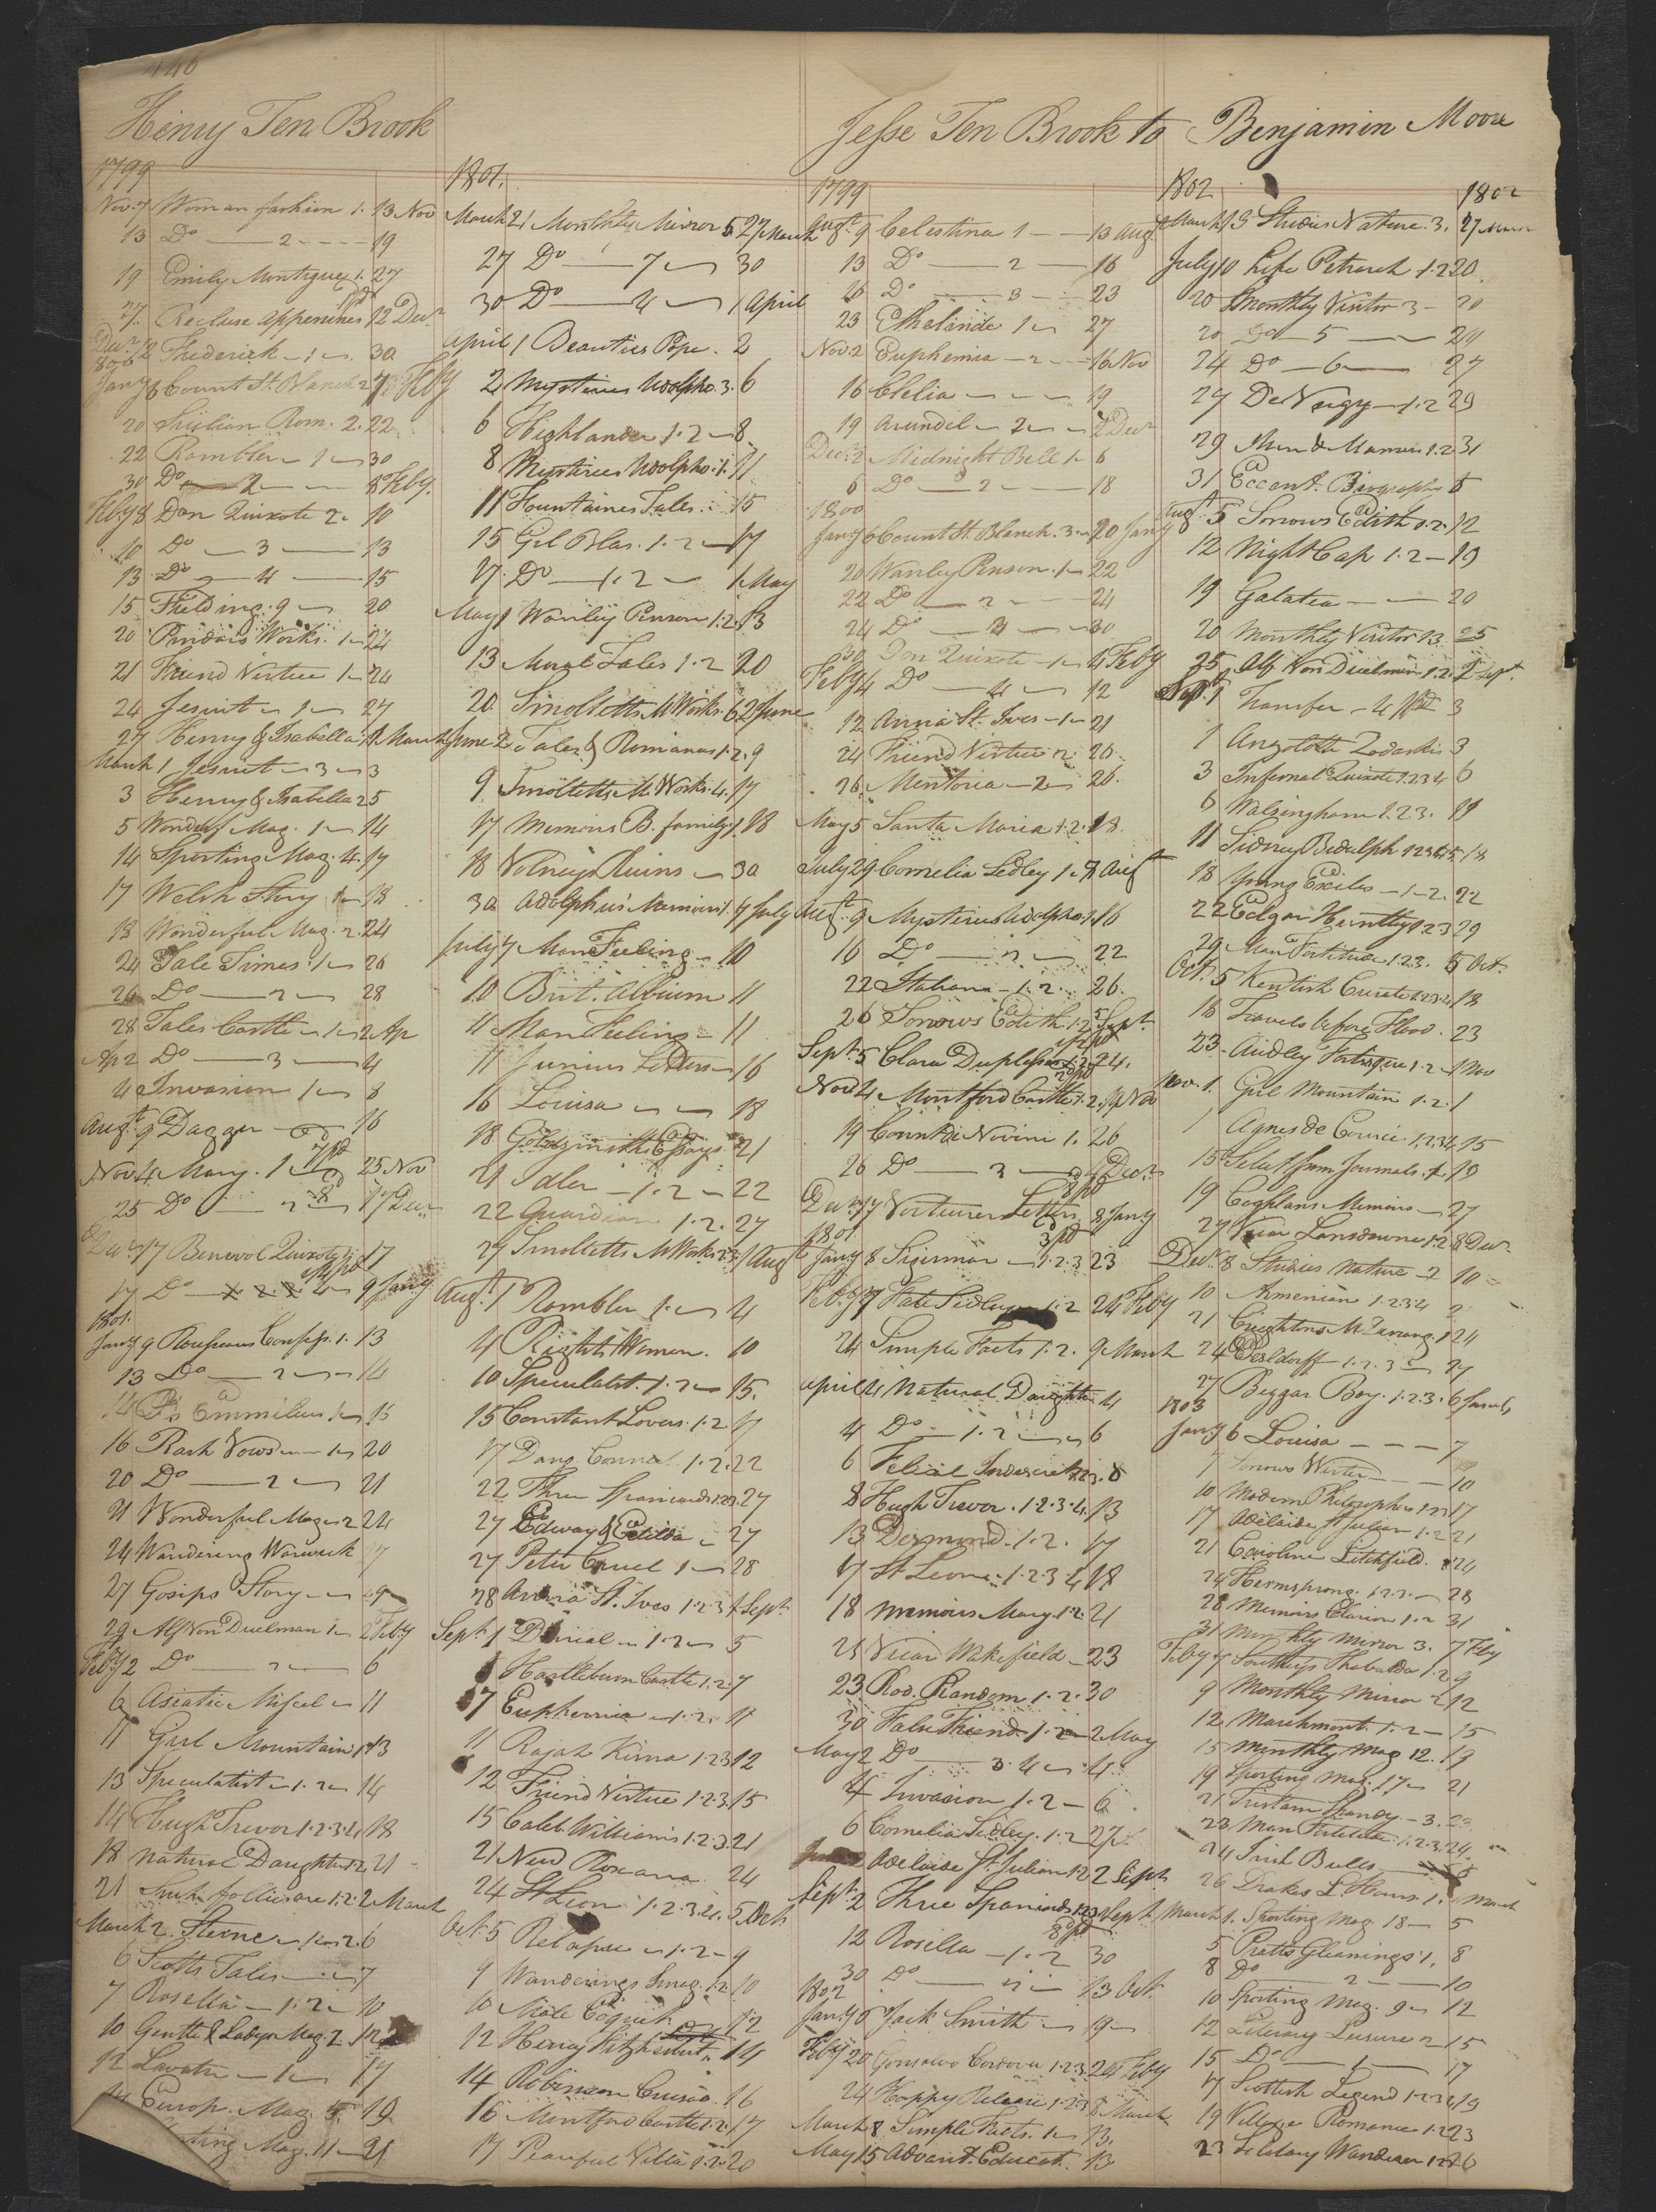 446
Henry Ten Brook
1799
Nov. 7 Woman fashion 1. 13 Nov
13 Do — 2 — 19
19 Emily Montague 1. 27
27. Recluse Appenines 12 Decr
Decr 12 Frederick — 1 — 30
1800
Jany 6 Count St. Blanch 2 Feby
20 Sicilian Rom. 2. 22
22 Rambler 1 — 30
30 Do — 2 — 8 Feby.
Feby 8 Don Quixote 2. 10
10 Do — 3 — 13
13 Do — 4 — 15
15 Fielding. 9 — 20
20 Pindars Works. 1 — 24
21 Friend Virtue 1 — 24
24 Jesuit — 1 — 27
27 Henry & Isabella 1 March
March 1 Jesuit — 3 — 3
3 Henry & Isabella 2 5
5 Wonderf Mag. 1 — 14
14 Sporting Mag. 4. 17
17 Welsh Story 1 — 18
18 Wonderful Mag. 2. 24
24 Tale Times. 1 — 26
26 Do — 2 — 28
28 Tales Castle — 1 — 2 Ap
Ap 2 Do — 3 — 4
4 Invasion 1 — 8
Augt. 9 Dagger — 16
Nov 4 Mary. 1 — 25 Nov
25 Do — 2 — 17 Decr
Decr 17 Benevol Quixote 17
17 Do — 4 — 9 Jany
1801.
Jany 9 Rousseaus Confess. 1. 13
13 Do — 2 — 14
14 Ds Emmilius 1 — 16
16 Rash Vows — 1 — 20
20 Do — 2 — 21
21 Wonderful Mag — 2 24
24 Wandering Warwick 27
27 Gosips Story — 29
29 Alf Von Duelman 1 — 2 Feby
Feby 2 Do — 2 — 6
6 Asiatic Miscel — 11
11 Girl Mountain 1 2 13
13 Speculatist — 1. 2 — 14
14 Hugh Trevor 1. 2. 3. 4. 18
18 Natural Daughter 1 2 21
21 1. 2. 2 March
March 2. Sterne — 1. 2. 6
6 Scotts Tales — 7
7 Rosella — 1. 2 — 10
10 Gentle & Ladys Mag. 2. 12
12 Lavater — 1 — 17
Europ. Mag. 5. 19
Mag. 11 — 21
1801.
March 21 Monthly Mirror 5 27 March
27 Do — 7 — 30
30 Do — 4 — 1 April
April 1 Beauties Pope. 2
2 Mysteries Udolpho. 3. 6
6 Highlander 1. 2 — 8
8 Mysteries Udolpho. 1. 11
11 Fountaines Tales. 15
15 Gil Blas. 1. 2 — 17
17 Do — 1. 2 — 1 May
May 1 Wanley Penson 1. 2. 13
13 Moral Tales 1. 2 20
20 Smolletts M Works. 6 2 June
June 2 Tales & Romances 1. 2. 9
9 Smolletts M. Works. 4. 17
17 Memoirs B. family. 1. 18
18 Volneys Ruins — 30
30 Adolphus Memoirs 1. 7 July
July 7 Man Feeling — 10
10 Brit. Albium 11
11 Man Feeling — 11
11 Junius Letters — 16
16 Louisa — 18
18 Goldsmiths Essays 21
21 Idler — 1. 2 — 22
22 Guardian 1. 2. 27
27 Smolletts M Works 2. 3. 1 Aug
Augt. 1 Rambler 1. — 4
4 Rights Women. 10
10 Speculatist. 1. 2 — 15.
15 Constant Lovers. 1. 2. 17
17 Dang. Connex. 1. 2. 22
22 Three Spaniards 1. 2. 3. 27
27 Edway & Edilda — 27
27 Peter Cruel 1 — 28
28 Anna St. Ives 1. 2. 3 1 Sept.
Sept. 1 Denial — 1. 2 — 5
Hartleburn Castle 1. 2. 7
7 Euphemia — 1. 2. 11
11 Rajah Kisna 1. 2. 3 12
12 Friend Virtue 1. 2. 3. 15
15 Caleb Williams 1. 2. 3. 21
21 New Roxana. 24
24 St. Leon 1. 2. 3. 4. 5 Oct
Oct. 5 Relapse — 1. 2 — 9
9 Wanderings Imag. 1. 2 10
10 Male Coquet. 12
12 Henry Fitzherbert 14
14 Robinson Crusoe. 16
16 Montford Castle 1. 2. 17
17 Peaceful Villa 1. 2. 20
Jesse Ten Brook to Benjamin Moore
1799
Augt. 9 Celestina 1 — 13 Augt
13 Do — 2 — 16
16 Do — 3 — 23
23 Ethelinde 1 — 27
Nov. 2 Euphemia — 2 — 16 Nov
16 Clelia — 19
19 Arundel — 2 — 2 Decr
Decr. 2 Midnight Bell 1 — 6
6 Do — 2 — 18
1800
Jany 6 Count St. Blanch. 3 — 20 Jany
20 Wanley Penson. 1 — 22
22 Do — 2 — 24
24 Do — 3 — 30
30 Don Quixote — 1 — 4 Feby
Feby 4 Do — 4 — 12
12 Anna St. Ives — 1 — 21
24 Friend Virtue 2. 26
26. Mentoria — 2 — 26.
May 5 Santa Maria 1. 2. 18.
July 29. Cornelia Sedley 1 — 9 Augt
Augt. 9 Mysteries Udolpho. 1. 16
16 Do — 2 — 22
22 Italian — 1. 2. 26.
26 Sorrows Edith 1. 2. 5 Sept.
Sept. 5 Clara Duplessis 1. 2. 24.
Nov 4 Montford Castle 1. 2. 19 Nov
19 Count di Novini 1. 26
26 Do — 3 — Decr
Decr. 17 Letters 8 Jany
1801
Jany 8 Sigismar — 1. 2. 3 23
Feby 17 Fate Sedley — 1. 2 24 Feby
24 Simple Facts 1. 2. 9 March
April 4 Natural Daughter 4
4 Do — 1. 2 — 6
6 Filial Indiscretions 1. 2. 3. 8
8 Hugh Trevor. 1. 2. 3. 4. 13
13 Desmond. 1. 2. 17
17 St Leone. 1. 2. 3. 4 18
18 Memoirs Mary. 1. 2. 21
21 Vicar Wakefield — 23
23. Rod. Random 1. 2. 30
30 False Friend. 1. 2 — 2 May
May 2 Do — 3. 4 — 4.
4 Invasion 1. 2 — 6.
6 Cornelia Sedley. 1. 2 27.
Adelaide St. Julian 1 2 2 Sept
Sept. 2 Three Spaniards 1. 2. 3 Sept.
12 Rosella — 1. 2 30
30 Do — 13 Oct.
1802
Jany 6 Jack Smith — 19
Feby 20 Gonsalvo Cordova 1. 2. 3. 24 Feby
24 Happy Release 1. 2. 3. 8 March
March 8. Simple Facts. 1 — 13.
May 15 Advant. Educat. 13
1802 1802
March 13 Studies Nature. 3. 27 March
July 10 Life Petrarch 1. 2 20.
20 Monthly Visitor 3 — 20
20 Do — 5 — 24
24 Do — 6 — 27
27 De Valgy — 1. 2 29
29 Men & Manners 1. 2. 31
31 Eccent. Biography 5
Augt. 5 Sorrows Edith 1. 2. 12
12 Night Cap 1. 2 — 19
19 Galatea — 20
20 Monthly Visitor 13. 25
25 Alf Von Duelman 1. 2. 2 Sept.
Sept. 1 Transfer — 4 3
1 3
3 Infernal Quixote 1. 2. 3. 4 6
6 Walsingham 1. 2. 3. 11
11 Sidney Bidulph 1 2 3 4 5 18
18 Young Exiles — 1. 2. 22
22 Edgar Huntly 1. 2. 3 29
29 Man Fortitude 1. 2. 3. 5 Oct.
Oct. 5 Kentish Curate 1. 2. 3. 4. 18
18 Travels before Flood. 23
23. Audley Fortesque 1. 2 — 1 Nov
Nov. 1. Girl Mountain 1. 2. 1
1 Agnes de Courci 1. 2. 3. 4. 15
15 Select from Journals. 1. 19
19 Coghlans Memoirs — 27
27 Vicar Lansdowne 1. 2 8 Decr.
Decr. 8 Studies Nature — 2 10
10 Armenian 1. 2. 3. 4 2
21 1 24
24 Elesldorff — 1. 2. 3 — 27
27 Beggar Boy. 1. 2. 3. 6 Jany
1803
Jany 6 Louisa — 7
7 Sorrows Werter — 10
10 Modern Philosophers 1. 2. 17
17 Adelaide St Julian 1. 2 21
21 Caroline Litchfield. 24
24 Hermsprong. 1. 2. — 28
28 Memoirs Clarion 1. 2 31
31 Monthly Mirror 3. 7 Feby
Feby 7 Southeys Thabalda 1. 2 9
9 Monthly Mirror 2 12
12 Marchmont. 1. 2 — 15
15 Monthly Mag 12. 19
19 Sporting Mag. 17 — 21
21 Tristam Shandy. — 3. 23
23 Man Fortitude 1. 2. 3. 24.
24 Irish Bulls — 26
26 Drakes L. Hours. 1. March
March 1. Sporting Mag. 18 — 5
5 Pratts Gleanings 1. 8
8 Do — 2 — 10
10 Sporting Mag. 9 — 12
12 Literary Leisure 2 — 15
15 Do — 1 — 17
17 Scottish Legend 1. 2. 3. 4 19
19 Village Romance 1. 2 23
23 Solitary Wanderer 1. 2 26